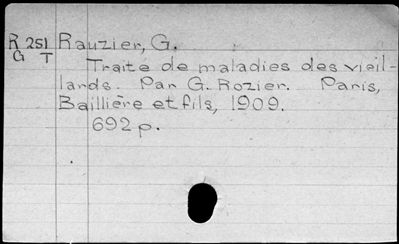 R 251 Rauzier, G.
G T
Traité de maladies des vieil-
lards. Par G. Rozier. Paris,
Baillière et fils, 1909.
692 p.